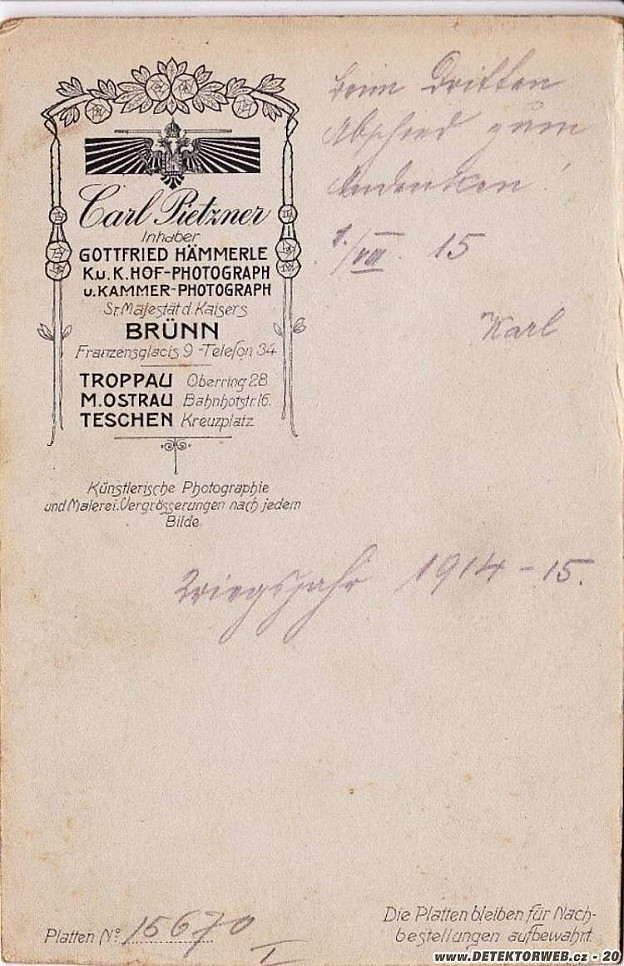 Carl Pietzner
Inhaber
GOTTFRIED HÄMMERLE
K.u.K.HOF-PHOTOGRAPH
u.KAMMER-PHOTOGRAPH
Sr.Majestät d.Kaisers
BRÜNN
Franzensglacis 9 -Telefon 34
TROPPAU Oberring 28
M.OSTRAU Bahnhofstr.16.
TESCHEN Kreuzplatz
Künstlerische Photographie
und Malerei.Vergrösserungen nach jedem
Bilde
beim Dritten
Abschied zum
Andenken!
1./VIII. 15
Karl
Kriegsjahr 1914-15.
Platten Nº 15670
I
Die Platten bleiben für Nach-
bestellungen aufbewahrt
www.DETEKTORWEB.cz - 20